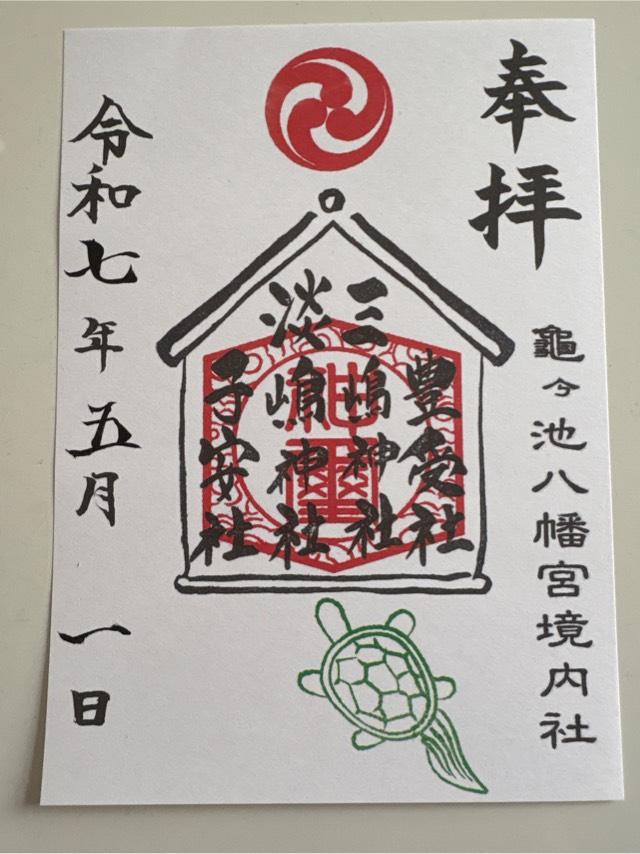 奉拝
龜ヶ池八幡宮境内社
豊受社
三嶋神社
淡嶋神社
子安社
令和七年五月一日